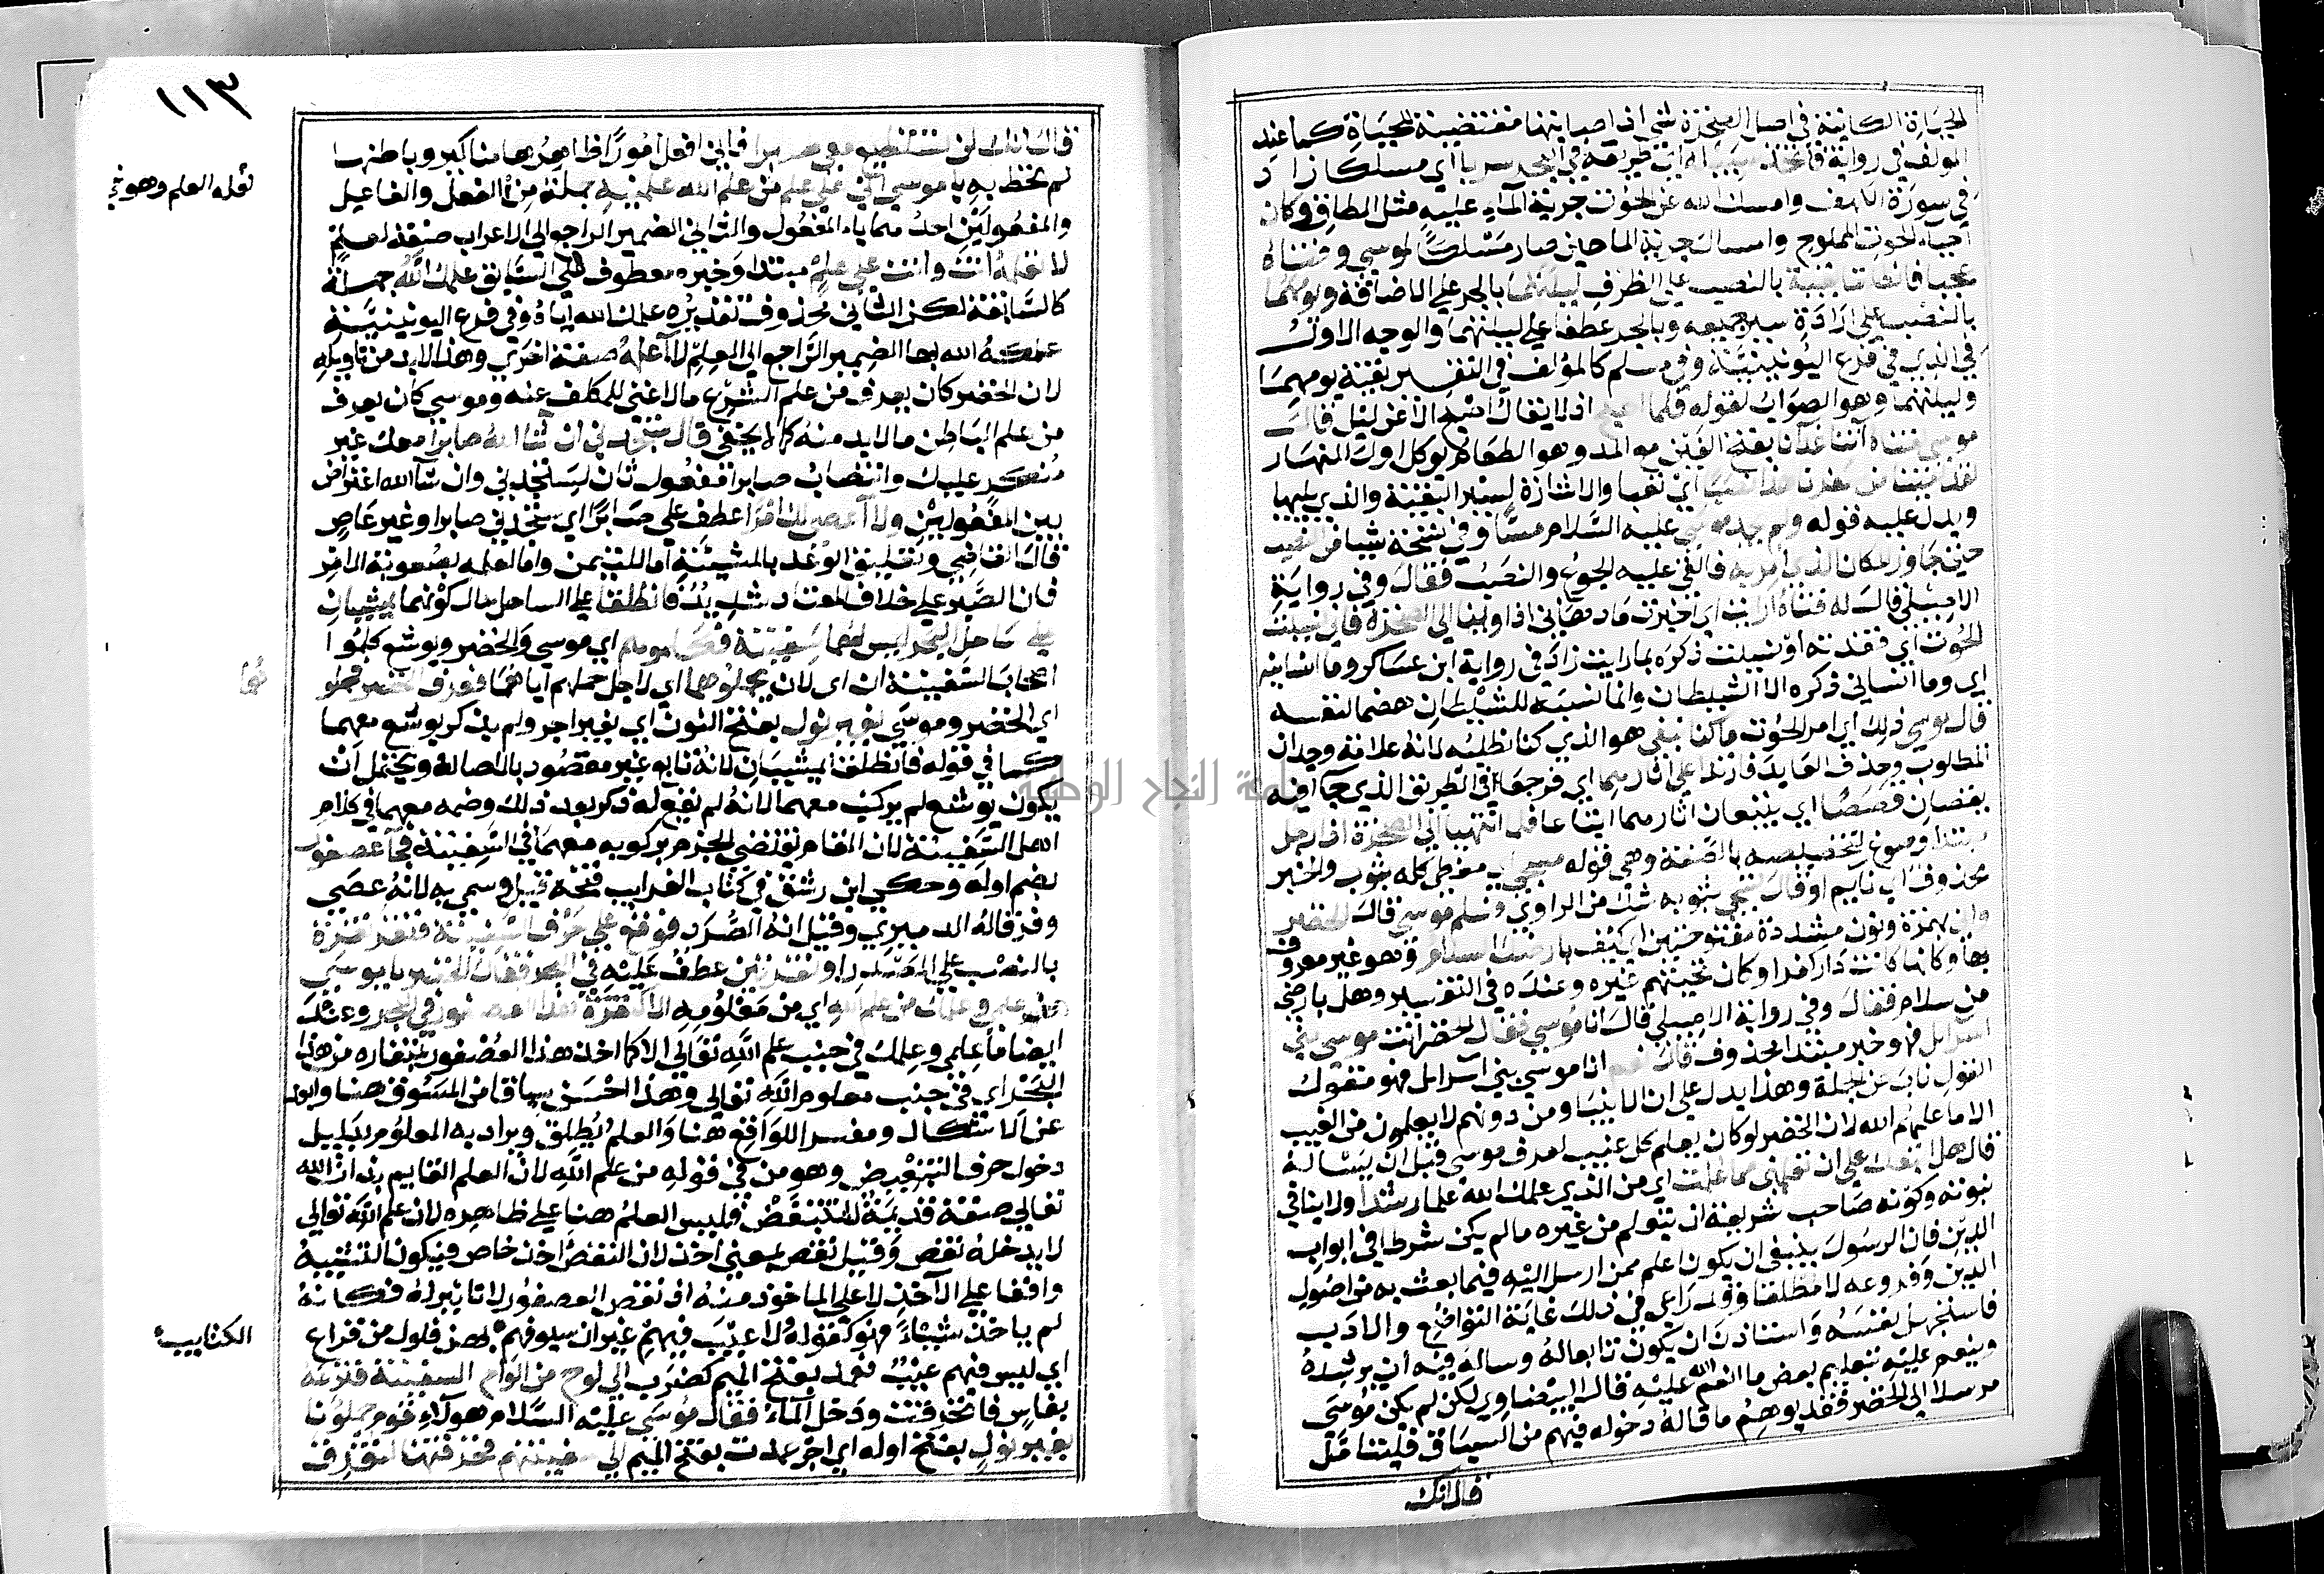 الحياة الكائنة في اصل الصخرة شي اذ اصابتها مقتضية للحياة كما عند
المولف في رواية فاتخذ سبيله اي طريقه في البحر سربا اي مسلكا زاد
في سورة الكهف وامسك الله عن الحوت جرية الماء عليه مثل الطاق وكان
احياء الحوت المملوح وامساك جرية الما حين صار مسلكا لموسي وفتاه
عجبا فانطلقا بقية بالنصب علي الظرف ليلتهما بالجر علي الاضافة ويومهما
بالنصب علي ارادة سير جميعه وبالجر عطفا علي ليلتهما والوجه الاول
في الذي في فرع اليونينية وفي مسلم كالمؤلف في التفسير بقية يومهما
وليلتهما وهو الصواب لقوله فلما اصبح اذ لا يقال اصبح الا عن ليل قال
موسي لفتاه آتنا غدآنا بفتح الغين مع المد وهو الطعام يوكل اول النهار
لقد لقينا من سفرنا هذا نصبا اي تعبا والاشارة لسير البقية والذي يليها
ويدل عليه قوله ولم يجد موسي عليه السلام مسا وفي نسخة شيا من النصب
حين جاوز المكان الذي امر به فالقي عليه الجوع والنصب فقال وفي رواية
الاصيلي قال له فتاه ارايت اي اخبرت ما دهاني اذ اوينا الي الصخرة فاني نسيت
الحوت اي فقدته او نسيت ذكره بما رايت زاد في رواية ابن عساكر وما انسانيه
اي وما انساني ذكره الا الشيطان وانما نسبه للشيطان هضما لنفسه
قال موسي ذلك اي امر الحوت ما كنا نبغي هو الذي كنا نطلبه لانه علامة وجدان
المطلوب وحذف العايد فارتدا علي اثارهما اي فرجعا في الطريق الذي جآ افيه
يقصان قصصا اي يتبعان اثارهما اتباعا فلما انتهيا الي الصخرة اذا رجل
مبتدا وسوغ لتخصيصه بالصفة وهي قوله مسجي اي مغطي كله بثوب والخبر
محذوف اي نايم او قال تسجي بثوبه شك من الراوي فسلم موسي فقال الخضر
واني بهمزة ونون مشددة مفتوحتين اي كيف بارضك السلام وهو غير معروف
بها وكانها كانت دار كفر او كان تحيتهم غيره وعنده في التفسير وهل بارضي
من سلام فقال وفي رواية الاصيلي قال انا موسي فقال الخضر انت موسي بني
اسرايل فهو خبر مبتدا محذوف قال نعم انا موسي بني اسرايل فهو مقول
القول ناب عن الجملة وهذا يدل علي ان الانبيا ومن دونهم لا يعلمون من الغيب
الا ما علمهم الله لان الخضر لو كان يعلم كل غيب لعرف موسي قبل ان يسالة
قال هل اتبعك علي ان تعلمني مما علمت اي من الذي علمك الله علما رشدا ولا ينافي
نبوته وكونه صاحب شريعة ان يتعلم من غيره ما لم يكن شرطا في ابواب
الدين فان الرسول ينبغي ان يكون اعلم ممن ارسل اليه فيما بعث به من اصول
الدين وفروعه لا مطلقا وقد راعي في ذلك غاية التواضع والادب
فاستجهل نفسه واستاذن ان يكون تابعا له وساله فيه ان يرشده
وينعم عليه بتعليم بعض ما انعم الله عليه قال البيضاوي لكن لم يكن موسي
مرسلا الي الخضر فقد يوهم ما قاله دخوله فيهم من السياق فليتامل
قال انك
١١٣
قال انك لن تستطيع معي صبرا فاني افعل امورا ظاهرها مناكير وباطنها
لم تحط به يا موسي اني علي علم من علم الله علمنيه جملة من الفعل والفاعل
تعلمه العلم وهو ني
والمفعولين احدهما ياء المفعول والثاني الضمير الراجع الي العلم صفة لعلم
لا تعلمه انت وانت علي علم مبتدا وخبره معطوف علي السابق علمك الله جملة
كالسابقة لكن الثاني محذوف تقديره علمك الله اياه وفي فرع اليونينية
علمكه الله بها الضمير الراجع الي العلم لا اعلمه صفة اخري وهذا لا بد من تاويله
لان الخضر كان يعرف من علم الشرع ما لا غني للمكلف عنه وموسي كان يعرف
من علم الباطن ما لا بد منه كما لا يخفي قال ستجدني ان شا الله صابرا معك غير
منكر عليك وانتصاب صابرا مفعول ثان لستجدني وان شآ الله اعتراض
بين المفعولين ولا آعصي لك امرا عطف علي صابرا اي ستجدني صابرا وغير عاص
قال القاضي وتعليق الوعد بالمشيئة اما للتيمن واما لعلمه بصعوبة الامر
فان الصبر علي خلاف المعتاد شديد فانطلقا علي الساحل حال كونهما يمشيان
علي ساحل البحر ليس لهما سفينة فمرت بهما اي موسي والخضر ويوشع كلموا
اصحاب السفينة ان اي لان يحملوهما اي لاجل حملهم اياهما فعرف الخضر فحملو
هما
اي الخضر وموسي بغير نول بفتح النون اي بغير اجر ولم يذكر يوشع معهما
كما في قوله فانطلقا يمشيان لانه تابع غير مقصود بالاصالة ويحتمل ان
يكون يوشع لم يركب معهما لانه لم يقع له ذكر بعد ذلك وضمه معهما في كلام
اهل السفينة لان المقام يقتضي الجزم بركوبه معهما في السفينة فجآ عصفور
بضم اوله وحكي ابن رشيق في كتاب الغرايب فتحه قيل وسمي به لانه عصي
وفر قاله الدميري وقيل انه الصرد فوقع علي حرف السفينة فنقر نقرة
بالنصب علي المصدر او نقرتين عطف عليه في البحر فقال الخضر يا موسي
ما نقص علمي وعلمك من علم الله اي من معلومه الا كنقرة هذا العصفور في البحر وعندك
ايضا ما علمي وعلمك في جنب علم الله تعالي الا كما اخذ هذا العصفور بمنقاره من هذا
البحر اي في جنب معلوم الله تعالي وهذا احسن سياقا من المسوق هنا وابعد
عن الاشكال ومفسر اللواقع هنا والعلم يطلق ويراد به المعلوم بدليل
دخول حرف التبعيض وهو من في قوله من علم الله لان العلم القايم بذات الله
تعالي صفة قديمة لا تتبعض فليس العلم هنا علي ظاهره لان علم الله تعالي
لا يدخله نقص وقيل نقص بمعني اخذ لان النقص اخذ خاص فيكون التشبيه
واقعا علي الآخذ لا علي الماخوذ منه اذ نقص العصفور لا تاثير له فكانه
لم ياخذ شيئا فهو كقوله ولا عيب فيهم غير ان سيوفهم بهن فلول من قراع
الكتايب
اي ليس فيهم عيب فعمد بفتح الميم كضرب الي لوح من الواح السفينة فنزعه
بفاس فانخرقت ودخل الماء فقال موسي عليه السلام هولآء قوم حملونا
بغير نول بفتح اوله اي اجر عمدت بفتح الميم الي سفينتهم فخرقتها لتغرق
جامعة النجاح الوطنية